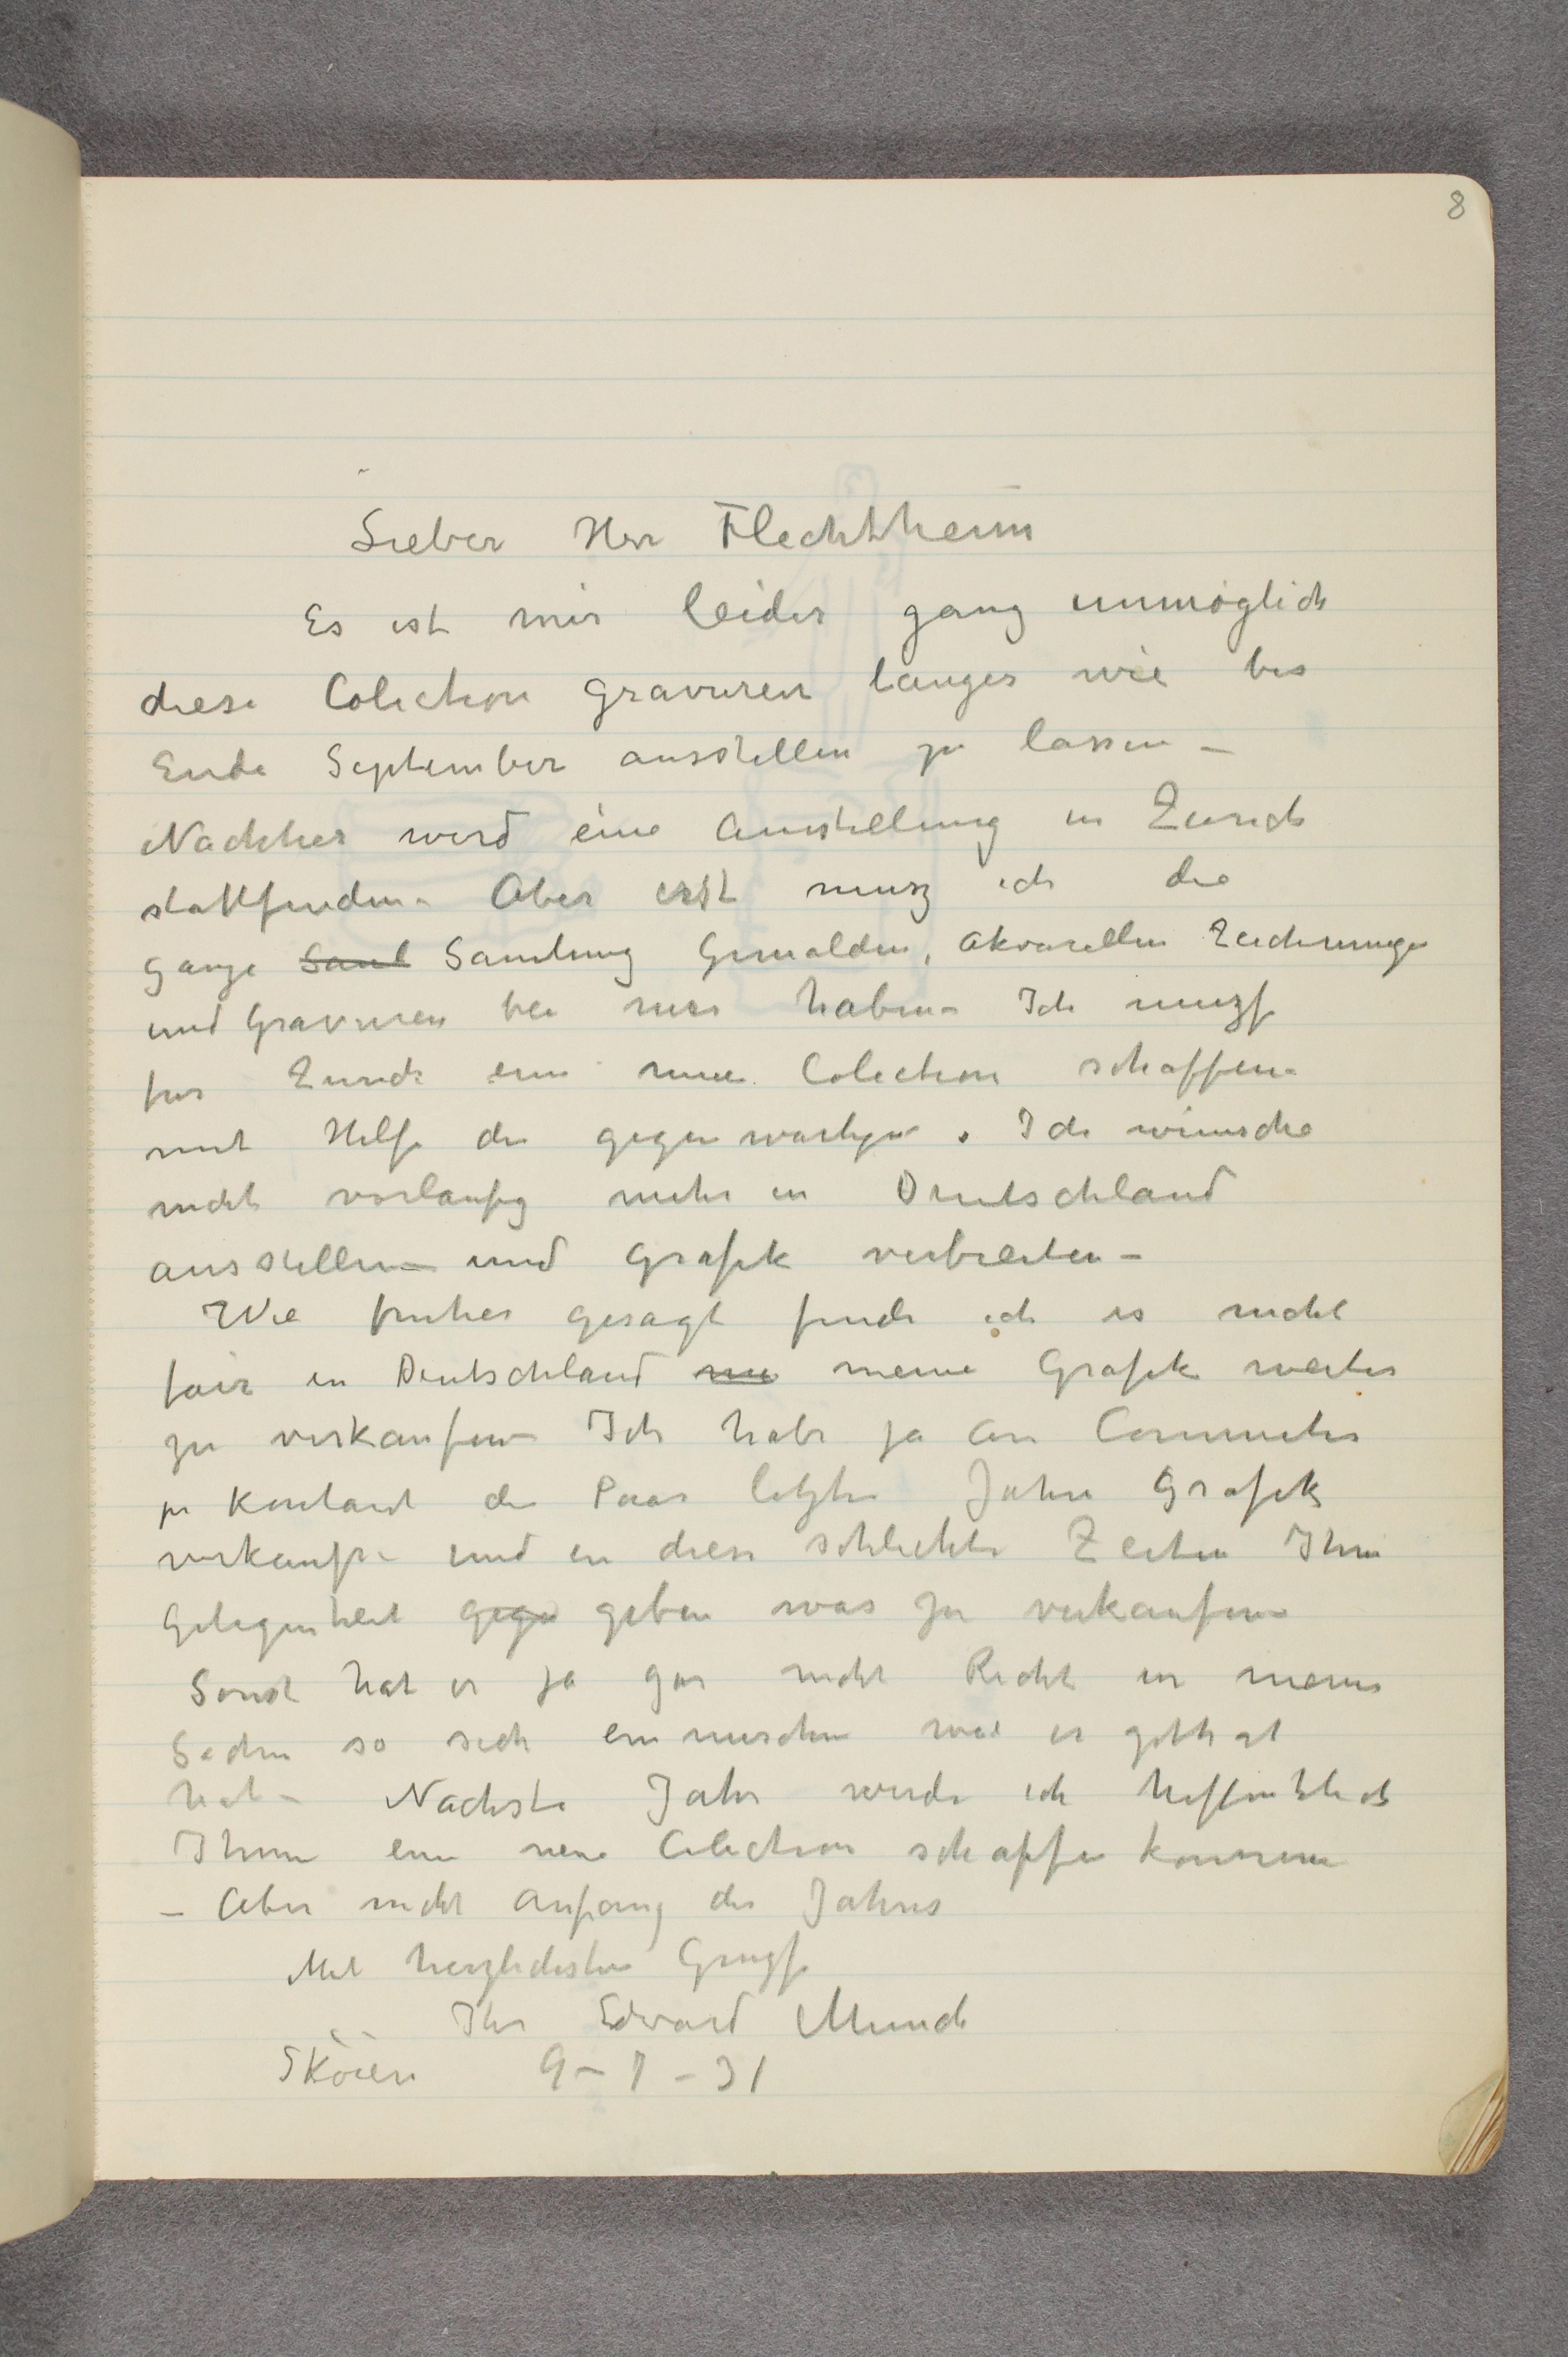 8
Lieber Herr Flechtheim
Es ist mir leider ganz unmöglich
diese Colection Gravuren länger wie bis
Ende September ausstellen zu lassen –
Nachher wird eine Ausstellung in Zürich
stattfinden – Aber erst musz ich die
ganze Saml Samlung Gemalden, Akvarellen Zeichnungen
und Gravuren bei mir haben – Ich muszs
für Zurich eine neue Colection schaffen –
mit Hilfe der gegenwartigen. Ich wünsche
nicht vorlaufig mehr in Deutschland
ausstellen – und Grafik verbreiten –
Wie früher gesagt finde ich es nicht
fair in Deutschland me meine Grafik weiter
zu verkaufen – Ich habe ja an Commeter
die Paar letzten Jahre Grafik
verkauft – und in diesen schlechten Zeiten Ihm
Gelegenheit gege geben was zu verkaufen –
Sonst hat er ja gar nicht Recht in meine
Sachen so sich einmischen wie er gethat
hat – Nächste Jahr werde ich hoffentlich
Ihnen eine neue Colection schaffen konnen
– Aber nicht Anfang des Jahres
Mit herzlichsten Gruszs
Ihr Edvard Munch
Sköien 9–31